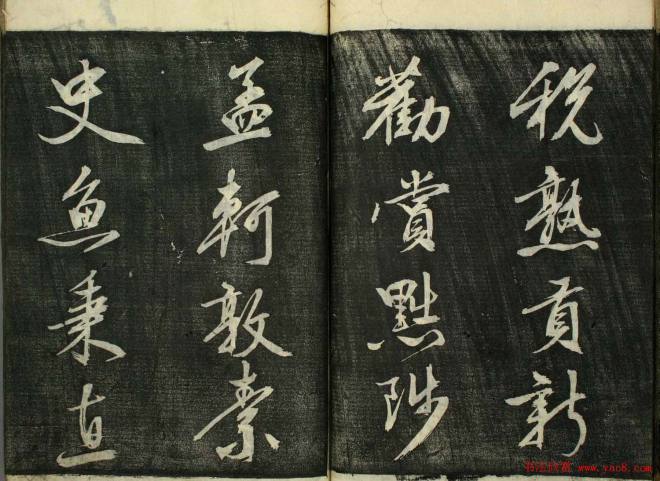 税熟貢新
勸賞黜陟
孟軻敦素
史魚秉直
书法欣赏 www.yac8.com